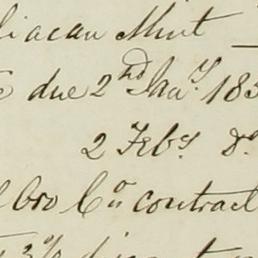 liacan Mint
due 2nd Jany. 183
2 Feby. Do
Bro Co contract
3%